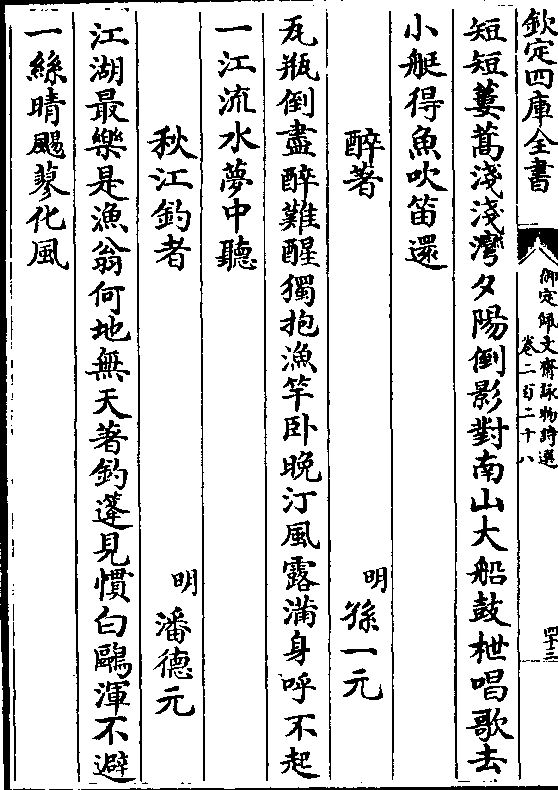 欽定四庫全書
御定佩文齋詠物詩選
卷二百二十八
四十三
短短蔞蒿淺淺灣夕陽倒影對南山大船鼓枻唱歌去
小艇得魚吹笛還
醉著
明 孫一元
瓦瓶倒盡醉難醒獨抱漁竿卧晚汀風露滿身呼不起
一江流水夢中聽
秋江釣者
明 潘德元
江湖最樂是漁翁何地無天著釣蓬見慣白鷗渾不避
一絲晴颺蓼花風